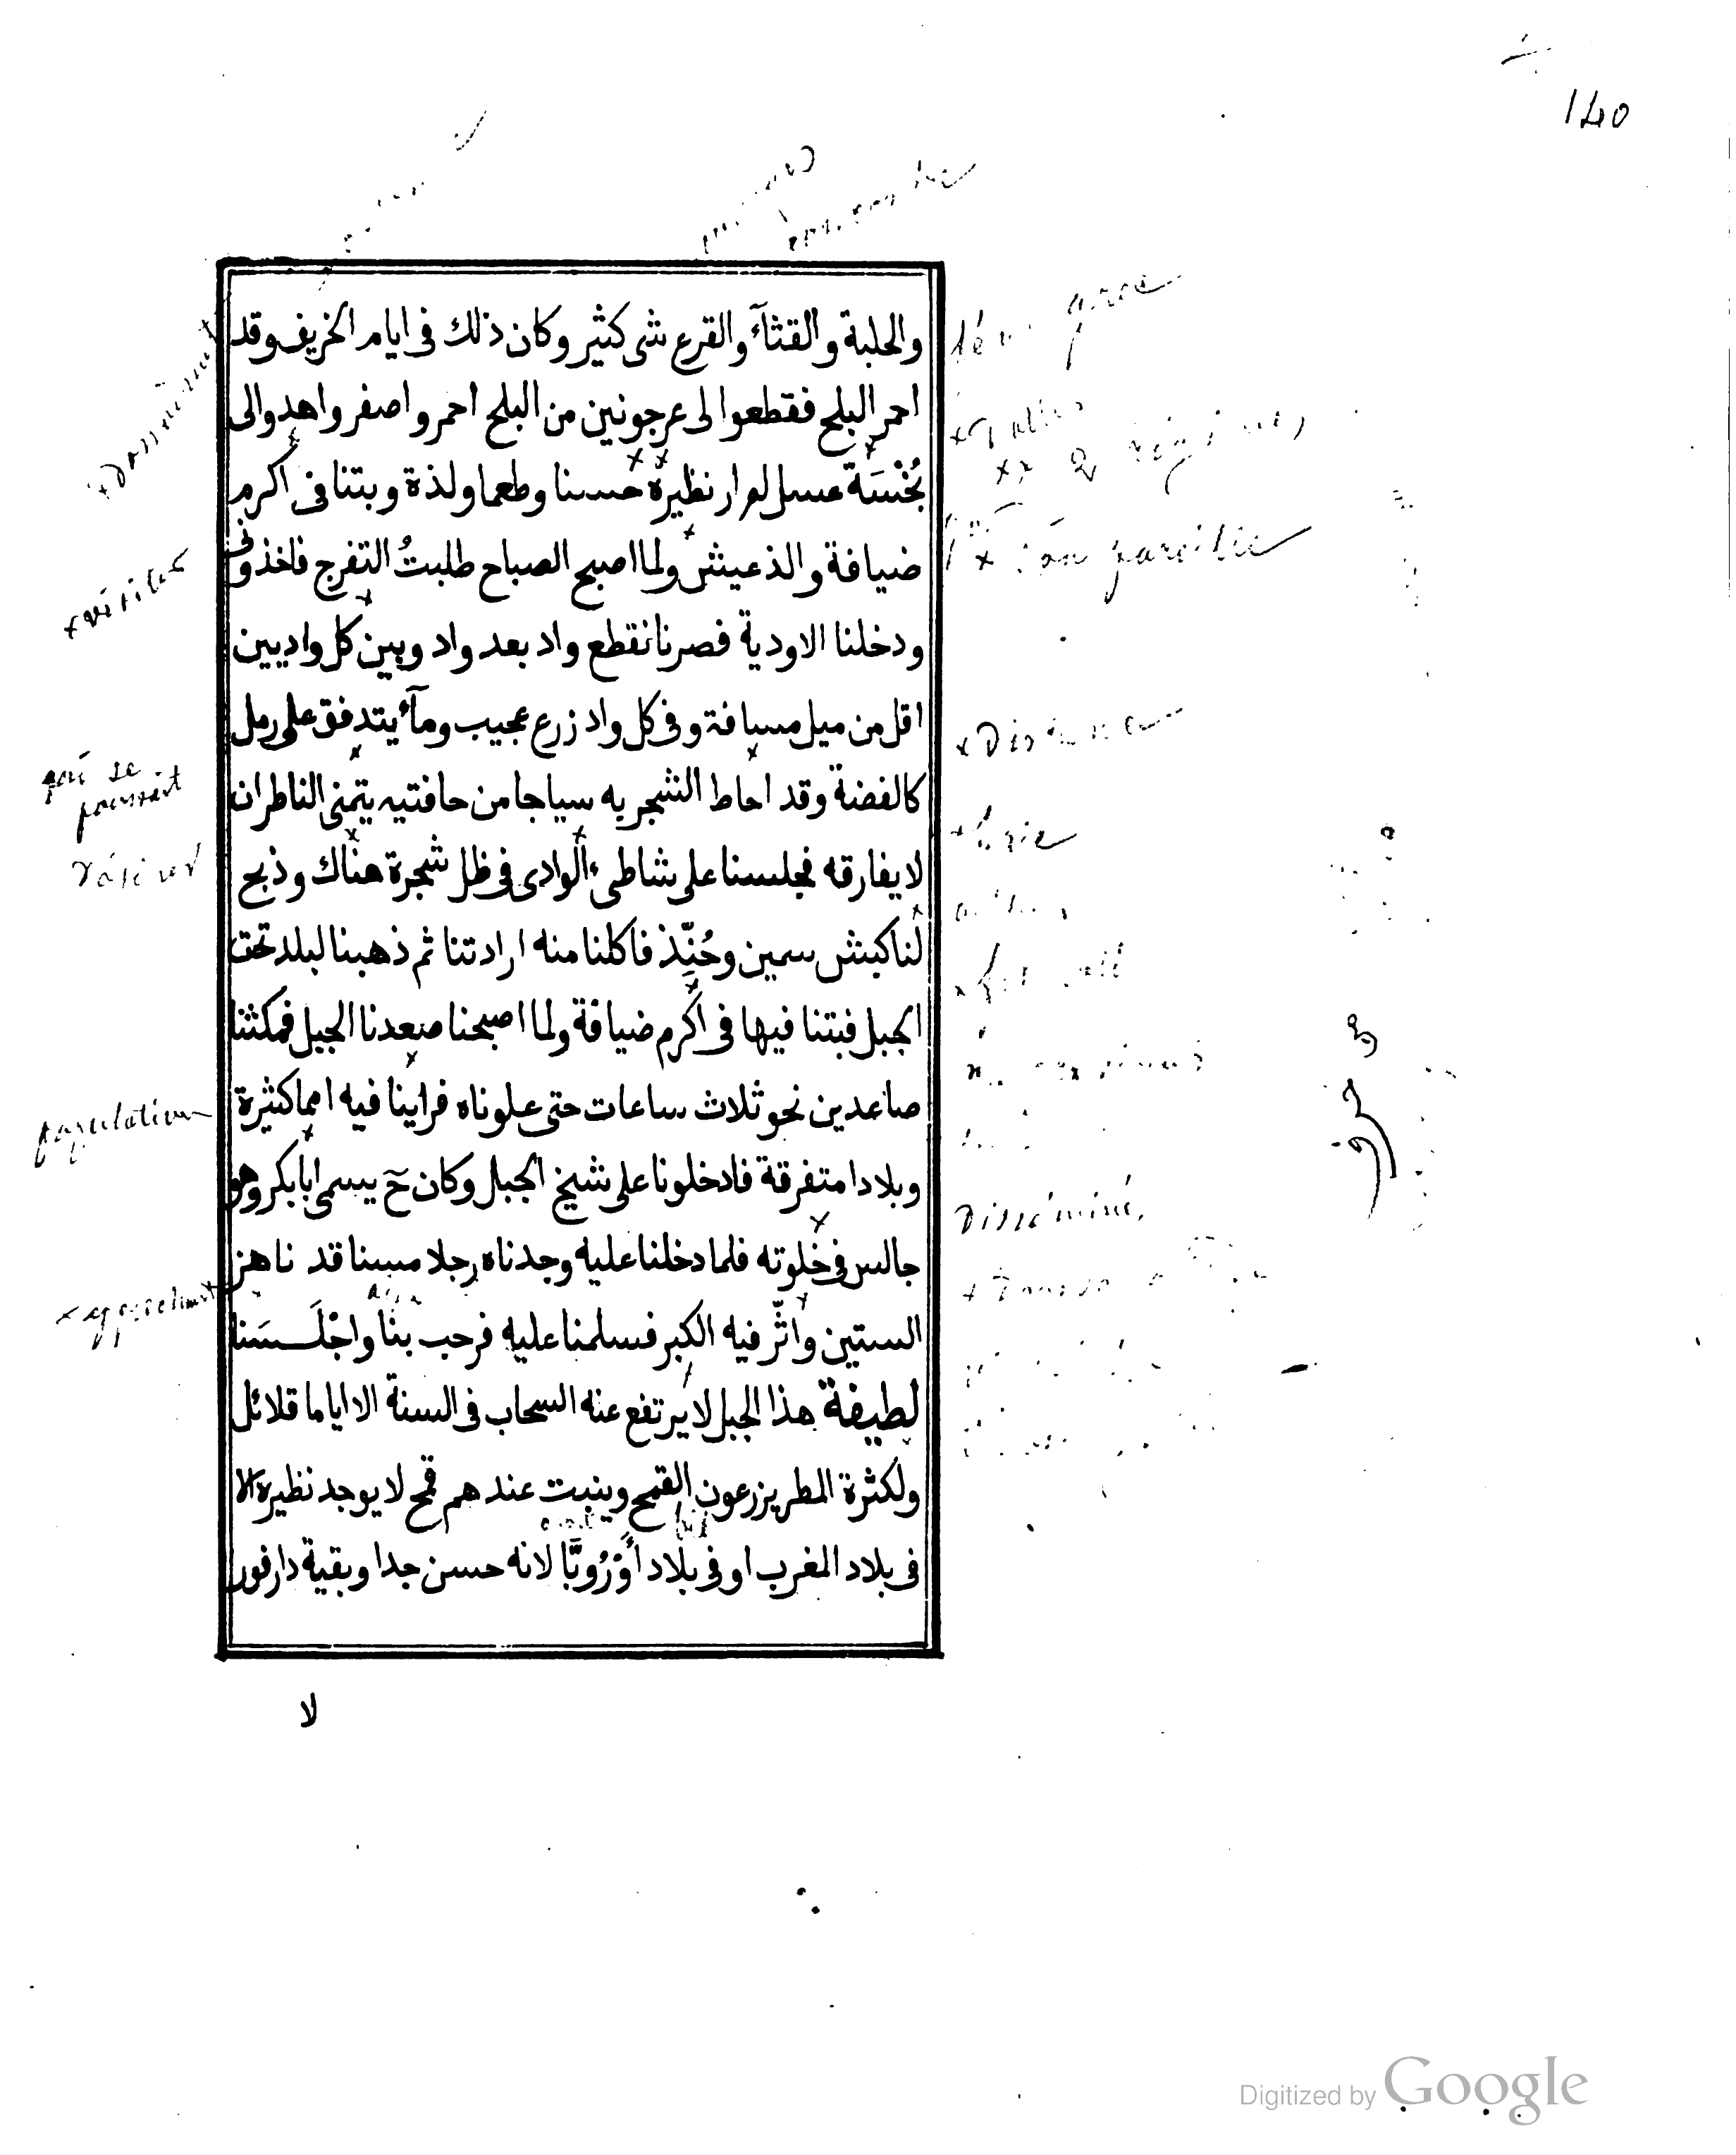 140
والحلبة والقثآء والقرع شى كثير وكان ذلك فى ايام الخريف وقد
احمر البلح فقطعوا لى عرجونين من البلح احمر واصفر واهدوالى
بُخْسَة عسل لم ار نظيره حسنا وطعما ولذة وبتنا فى اكرم
ضيافة والذ عيش ولما اصبح الصباح طلبتُ التفرج فاخذونى
ودخلنا الاودية فصرنا نقطع واد بعد واد وبين كل واديين
اقل من ميل مسافة وفى كل واد زرع عجيب ومآء يتدفق على رمل
كالفضة وقد احاط الشجر به سياجا من حافتيه يتمنى الناظر ان
لا يفارقه فجلسنا على شاطىء الوادى فى ظل شجرة هناك وذبح
لنا كبش سمين وحُنِّذ فاكلنا منه ارادتنا ثم ذهبنا لبلد تحت
الجبل فبتنا فيها فى اكرم ضيافة ولما اصبحنا صعدنا الجبل فمكثنا
صاعدين نحو ثلاث ساعات حتى علوناه فراينا فيه امما كثيرة
وبلادا متفرقة فادخلونا على شيخ الجبل وكان حٓ يسمى ابا بكر وهو
جالس فى خلوته فلما دخلنا عليه وجدناه رجلا مسنا قد ناهز
الستين واثّر فيه الكبر فسلمنا عليه فرحب بنا واجْلَسَنا
لطيفة هذا الجبل لا يرتفع عنه السحاب فى السنة الا اياما قلائل
ولكثرة المطر يزرعون القمح وينبت عندهم قمح لا يوجد نظيره الا
فى بلاد المغرب او فى بلاد أوْرُوبَّا لانه حسن جدا وبقية دارفور
لا
sans pareille
+ Distance
Disséminé
+ visiter
qui se
poussait
désirer
population
Digitized by Google